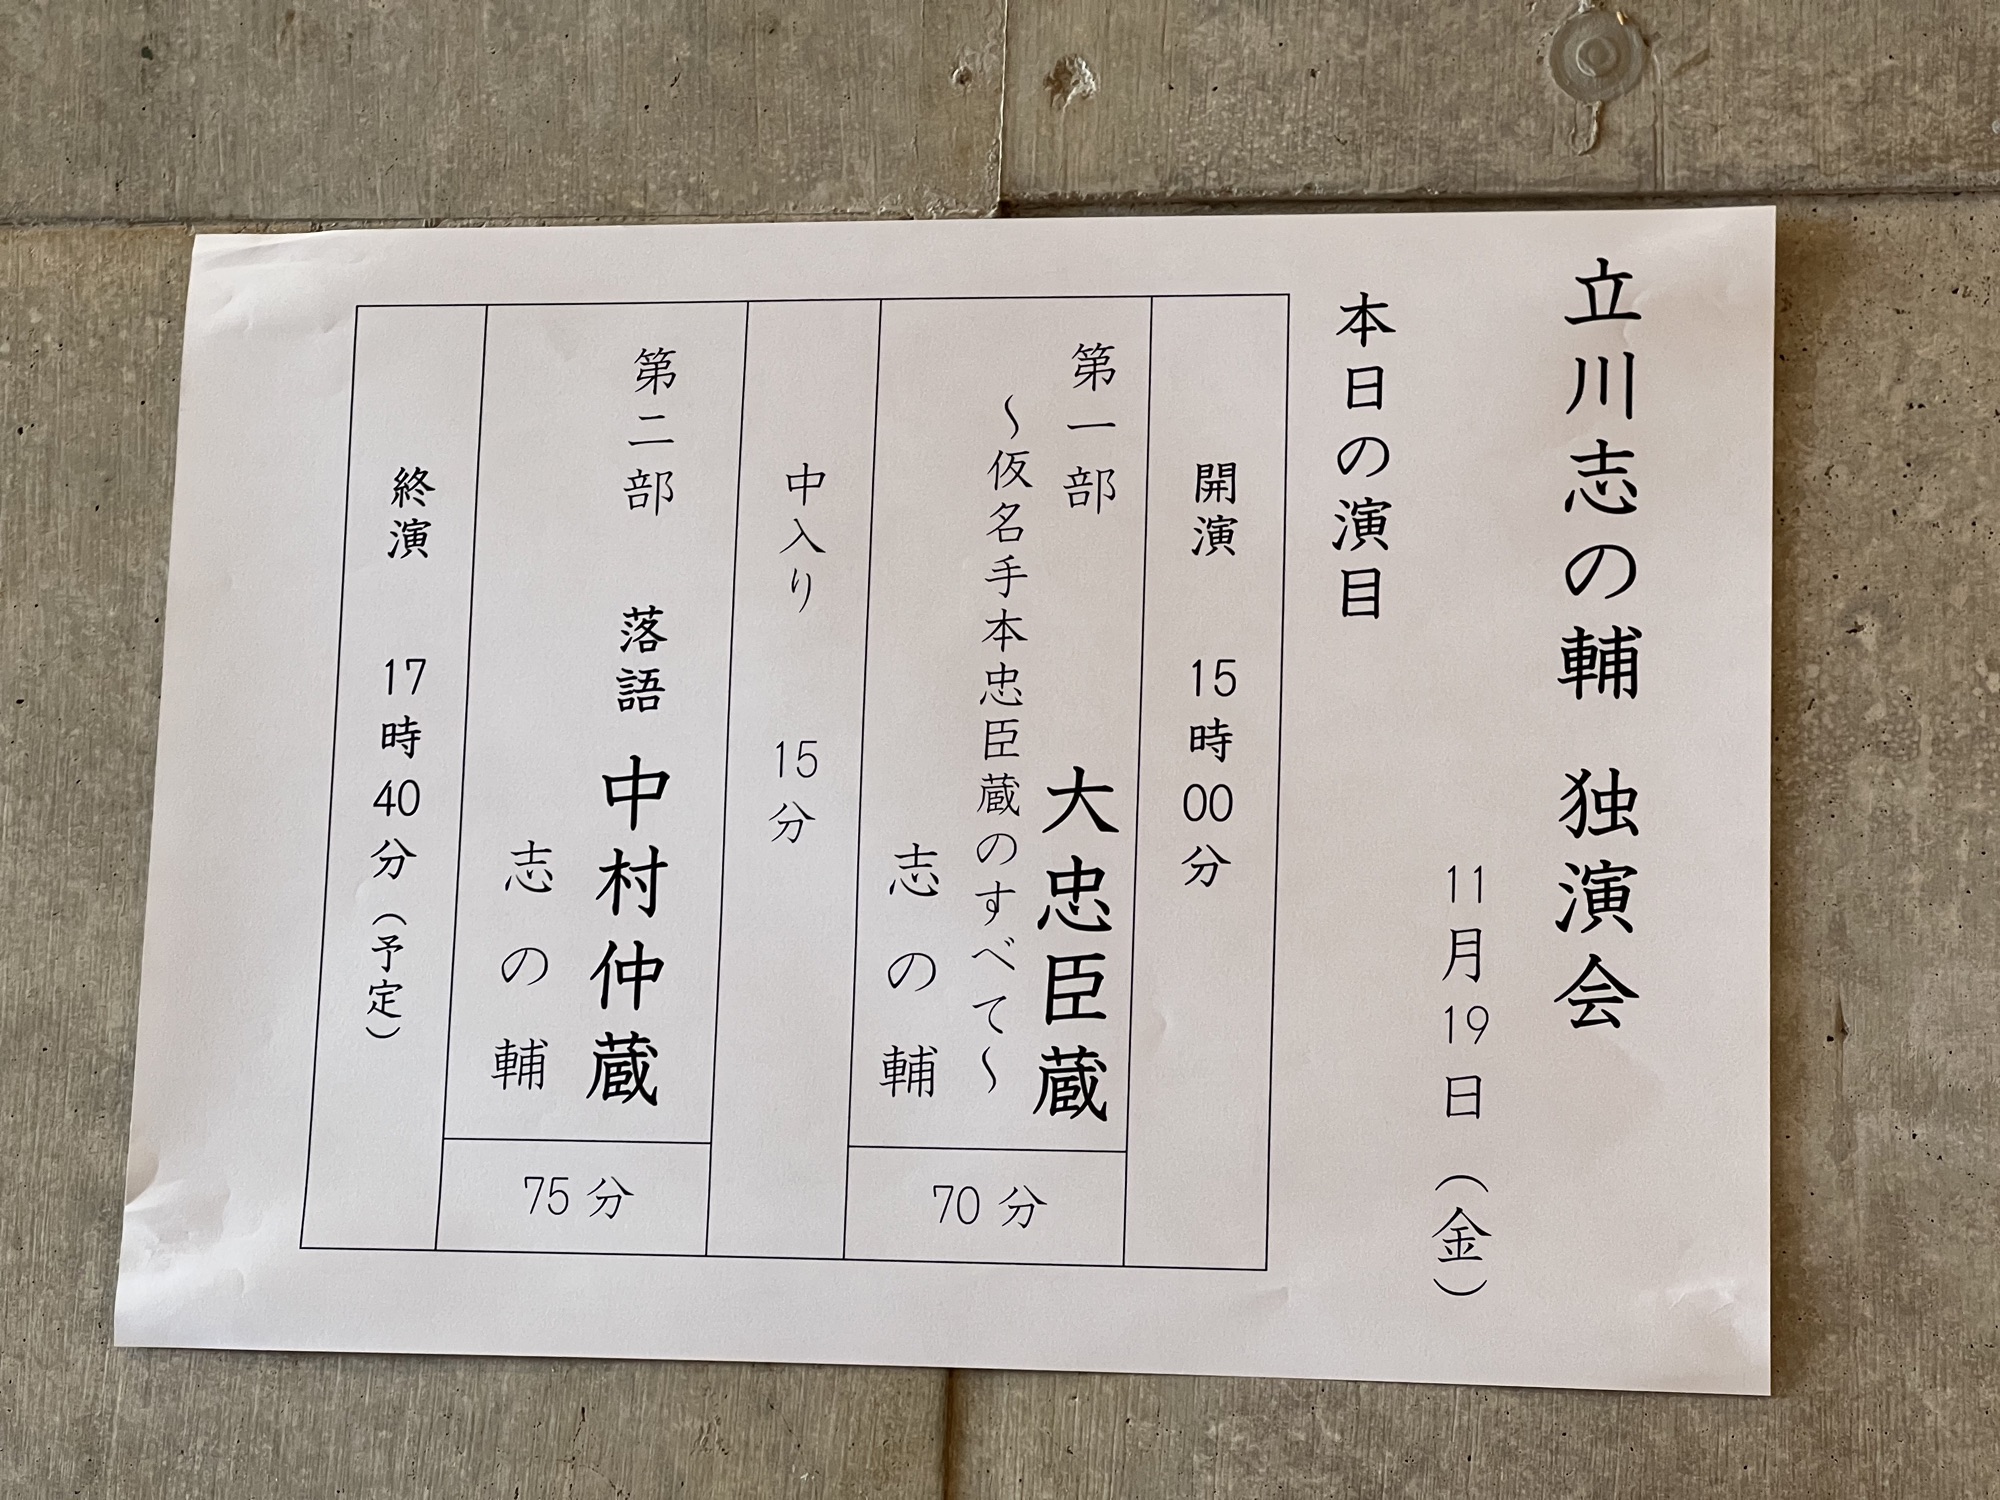 立川志の輔 独演会
11月19日（金）
本日の演目
開演 15時00分
第一部 大忠臣蔵
～仮名手本忠臣蔵のすべて～
志の輔
70分
中入り 15分
第二部 落語 中村仲蔵
志の輔
75分
終演 17時40分（予定）